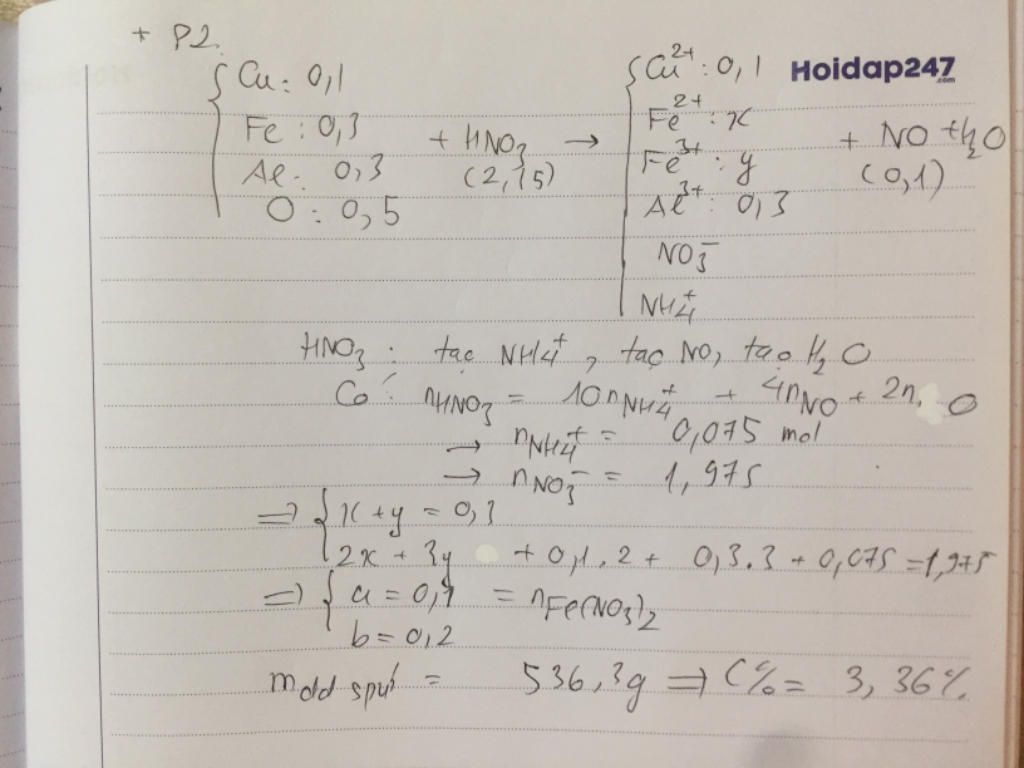 + P2.
Cu: 0,1
Fe: 0,3
Al: 0,3
O: 0,5
+ HNO3 →
(2,15)
Cu2+: 0,1
Fe2+: x
Fe3+: y
Al3+: 0,3
NO3-
NH4+
+ NO + H2O
(0,1)
Hoidap247
.com
HNO3: tạo NH4+, tạo NO, tạo H2O
Có: nHNO3 = 10nNH4+ + 4nNO + 2n O
→ nNH4+ = 0,075 mol
→ nNO3- = 1,975
=> { x + y = 0,3
2x + 3y + 0,1.2 + 0,3.3 + 0,075 = 1,975
=> { a = 0,1 = nFe(NO3)2
b = 0,2
mdd spứ = 536,3g => C% = 3,36%